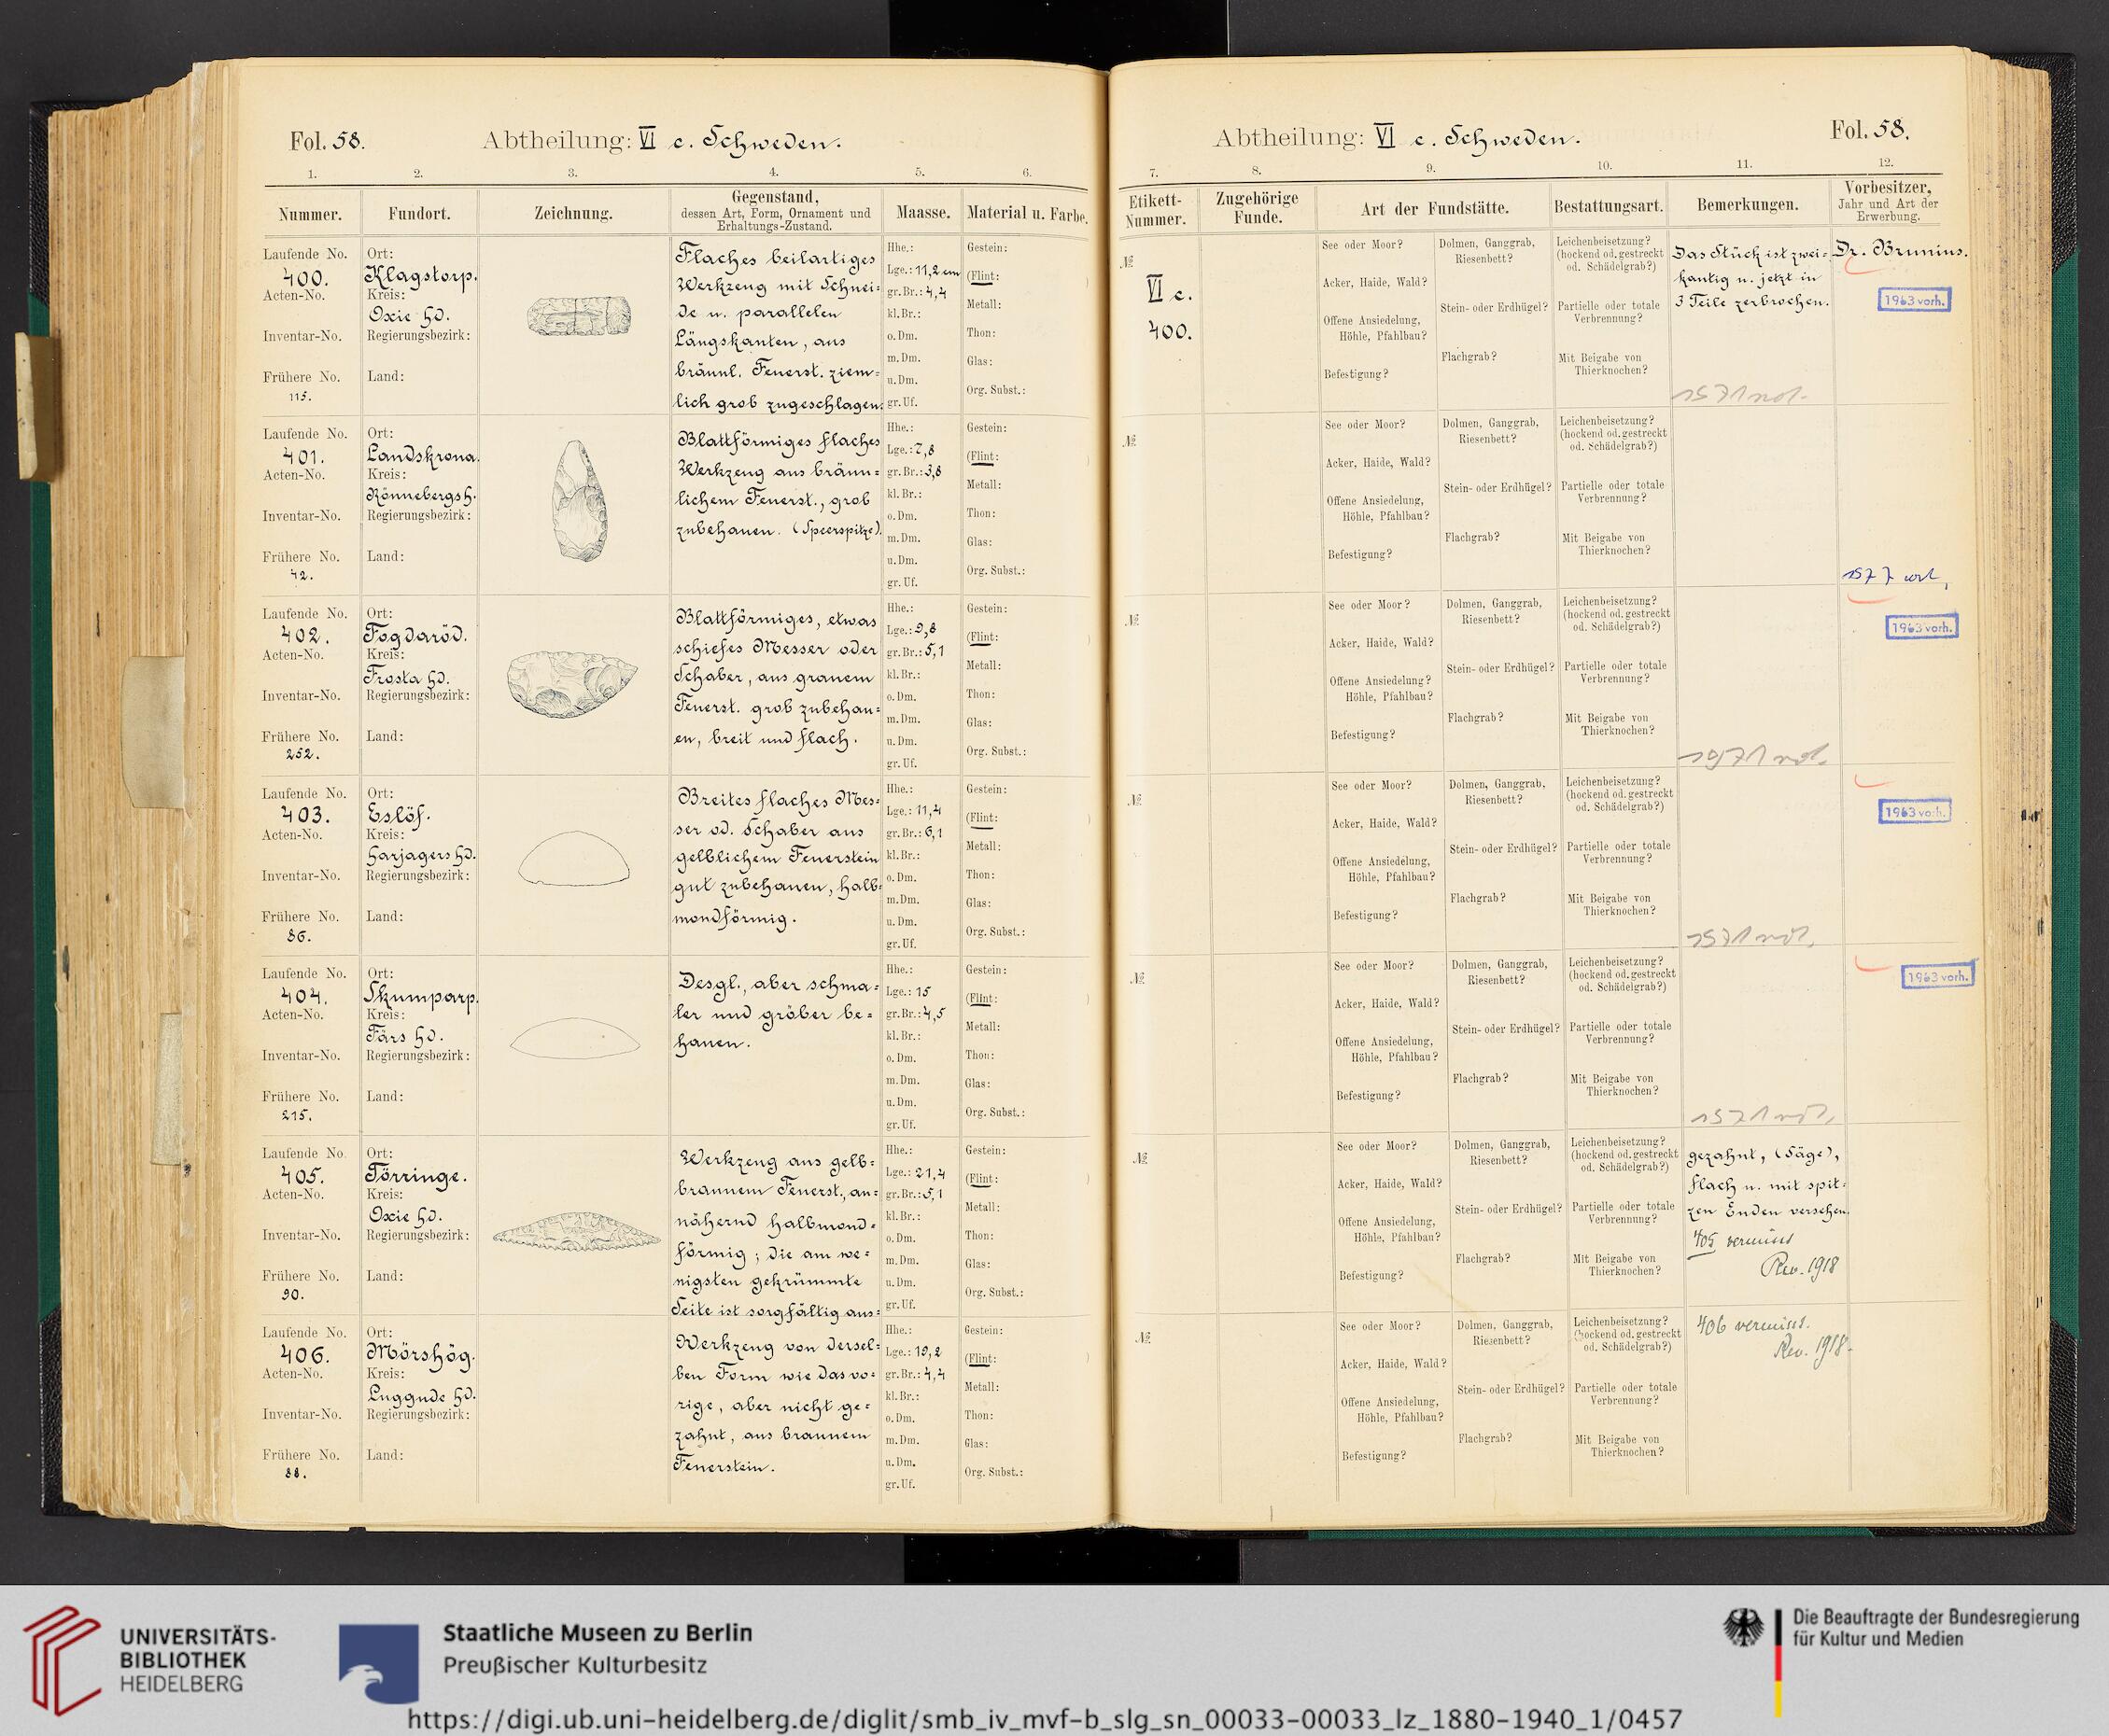 Fol. 58.
Abtheilung: VI c. Schweden.
1. 2. 3. 4. 5. 6.
Nummer. Fundort. Zeichnung. Gegenstand, dessen Art, Form, Ornament und Erhaltungs-Zustand. Maasse. Material u. Farbe.
Laufende No.
400.
Acten-No.
Inventar-No.
Frühere No.
115.
Ort:
Klagstorp.
Kreis:
Oxie Hd.
Regierungsbezirk:
Land:
Flaches beilartiges
Werkzeug mit Schnei=
de u. parallelen
Längskanten, aus
bräunl. Feuerst. ziem=
lich grob zugeschlagen.
Hhe.:
Lge.: 11,2 cm
gr. Br.: 4,4
kl. Br.:
o. Dm.
m. Dm.
u. Dm.
gr. Uf.
Gestein:
(Flint:
Metall:
Thon:
Glas:
Org. Subst.:
Laufende No.
401.
Acten-No.
Inventar-No.
Frühere No.
42.
Ort:
Landskrona.
Kreis:
Rönnebergs H.
Regierungsbezirk:
Land:
Blattförmiges flaches
Werkzeug aus bräun=
lichem Feuerst., grob
zubehauen. (Speerspitze).
Hhe.:
Lge.: 7,8
gr. Br.: 3,8
kl. Br.:
o. Dm.
m. Dm.
u. Dm.
gr. Uf.
Gestein:
(Flint:
Metall:
Thon:
Glas:
Org. Subst.:
Laufende No.
402.
Acten-No.
Inventar-No.
Frühere No.
252.
Ort:
Fogdaröd.
Kreis:
Frosta Hd.
Regierungsbezirk:
Land:
Blattförmiges, etwas
schiefes Messer oder
Schaber, aus grauem
Feuerst. grob zubehau=
en, breit und flach.
Hhe.:
Lge.: 9,8
gr. Br.: 5,1
kl. Br.:
o. Dm.
m. Dm.
u. Dm.
gr. Uf.
Gestein:
(Flint:
Metall:
Thon:
Glas:
Org. Subst.:
Laufende No.
403.
Acten-No.
Inventar-No.
Frühere No.
86.
Ort:
Eslöf.
Kreis:
Harjagers Hd.
Regierungsbezirk:
Land:
Breites flaches Mes=
ser od. Schaber aus
gelblichem Feuerstein
gut zubehauen, halb=
mondförmig.
Hhe.:
Lge.: 11,4
gr. Br.: 6,1
kl. Br.:
o. Dm.
m. Dm.
u. Dm.
gr. Uf.
Gestein:
(Flint:
Metall:
Thon:
Glas:
Org. Subst.:
Laufende No.
404.
Acten-No.
Inventar-No.
Frühere No.
215.
Ort:
Skumparp.
Kreis:
Färs Hd.
Regierungsbezirk:
Land:
Desgl., aber schma=
ler und gröber be=
hauen.
Hhe.:
Lge.: 15
gr. Br.: 4,5
kl. Br.:
o. Dm.
m. Dm.
u. Dm.
gr. Uf.
Gestein:
(Flint:
Metall:
Thon:
Glas:
Org. Subst.:
Laufende No.
405.
Acten-No.
Inventar-No.
Frühere No.
90.
Ort:
Törringe.
Kreis:
Oxie Hd.
Regierungsbezirk:
Land:
Werkzeug aus gelb=
braunem Feuerst., an=
nähernd halbmond=
förmig; die am we=
nigsten gekrümmte
Seite ist sorgfältig aus=
Hhe.:
Lge.: 21,4
gr. Br.: 5,1
kl. Br.:
o. Dm.
m. Dm.
u. Dm.
gr. Uf.
Gestein:
(Flint:
Metall:
Thon:
Glas:
Org. Subst.:
Laufende No.
406.
Acten-No.
Inventar-No.
Frühere No.
88.
Ort:
Mörshög.
Kreis:
Luggude Hd.
Regierungsbezirk:
Land:
Werkzeug von dersel=
ben Form wie das vo=
rige, aber nicht ge=
zahnt, aus braunem
Feuerstein.
Hhe.:
Lge.: 19,2
gr. Br.: 4,4
kl. Br.:
o. Dm.
m. Dm.
u. Dm.
gr. Uf.
Gestein:
(Flint:
Metall:
Thon:
Glas:
Org. Subst.:
Abtheilung: VI c. Schweden.
Fol. 58.
7. 8. 9. 10. 11. 12.
Etikett-Nummer. Zugehörige Funde. Art der Fundstätte. Bestattungsart. Bemerkungen. Vorbesitzer, Jahr und Art der Erwerbung.
№
VI c.
400.
See oder Moor?
Acker, Haide, Wald?
Offene Ansiedelung,
Höhle, Pfahlbau?
Befestigung?
Dolmen, Ganggrab,
Riesenbett?
Stein- oder Erdhügel?
Flachgrab?
Leichenbeisetzung?
(hockend od. gestreckt
od. Schädelgrab?)
Partielle oder totale
Verbrennung?
Mit Beigabe von
Thierknochen?
Das Stück ist zwei=
kantig u. jetzt in
3 Teile zerbrochen.
Dr. Brunius.
1963 vorh.
№
See oder Moor?
Acker, Haide, Wald?
Offene Ansiedelung,
Höhle, Pfahlbau?
Befestigung?
Dolmen, Ganggrab,
Riesenbett?
Stein- oder Erdhügel?
Flachgrab?
Leichenbeisetzung?
(hockend od. gestreckt
od. Schädelgrab?)
Partielle oder totale
Verbrennung?
Mit Beigabe von
Thierknochen?
№
See oder Moor?
Acker, Haide, Wald?
Offene Ansiedelung?
Höhle, Pfahlbau?
Befestigung?
Dolmen, Ganggrab,
Riesenbett?
Stein- oder Erdhügel?
Flachgrab?
Leichenbeisetzung?
(hockend od. gestreckt
od. Schädelgrab?)
Partielle oder totale
Verbrennung?
Mit Beigabe von
Thierknochen?
1963 vorh.
№
See oder Moor?
Acker, Haide, Wald?
Offene Ansiedelung,
Höhle, Pfahlbau?
Befestigung?
Dolmen, Ganggrab,
Riesenbett?
Stein- oder Erdhügel?
Flachgrab?
Leichenbeisetzung?
(hockend od. gestreckt
od. Schädelgrab?)
Partielle oder totale
Verbrennung?
Mit Beigabe von
Thierknochen?
1963 vorh.
№
See oder Moor?
Acker, Haide, Wald?
Offene Ansiedelung,
Höhle, Pfahlbau?
Befestigung?
Dolmen, Ganggrab,
Riesenbett?
Stein- oder Erdhügel?
Flachgrab?
Leichenbeisetzung?
(hockend od. gestreckt
od. Schädelgrab?)
Partielle oder totale
Verbrennung?
Mit Beigabe von
Thierknochen?
1963 vorh.
№
See oder Moor?
Acker, Haide, Wald?
Offene Ansiedelung,
Höhle, Pfahlbau?
Befestigung?
Dolmen, Ganggrab,
Riesenbett?
Stein- oder Erdhügel?
Flachgrab?
Leichenbeisetzung?
(hockend od. gestreckt
od. Schädelgrab?)
Partielle oder totale
Verbrennung?
Mit Beigabe von
Thierknochen?
gezahnt, (Säge),
flach u. mit spit=
zen Enden versehen.
405 vermisst
Rev. 1918
№
See oder Moor?
Acker, Haide, Wald?
Offene Ansiedelung,
Höhle, Pfahlbau?
Befestigung?
Dolmen, Ganggrab,
Riesenbett?
Stein- oder Erdhügel?
Flachgrab?
Leichenbeisetzung?
(hockend od. gestreckt
od. Schädelgrab?)
Partielle oder totale
Verbrennung?
Mit Beigabe von
Thierknochen?
406 vermisst.
Rev. 1918.
UNIVERSITÄTS-
BIBLIOTHEK
HEIDELBERG
Staatliche Museen zu Berlin
Preußischer Kulturbesitz
Die Beauftragte der Bundesregierung
für Kultur und Medien
https://digi.ub.uni-heidelberg.de/diglit/smb_iv_mvf-b_slg_sn_00033-00033_lz_1880-1940_1/0457